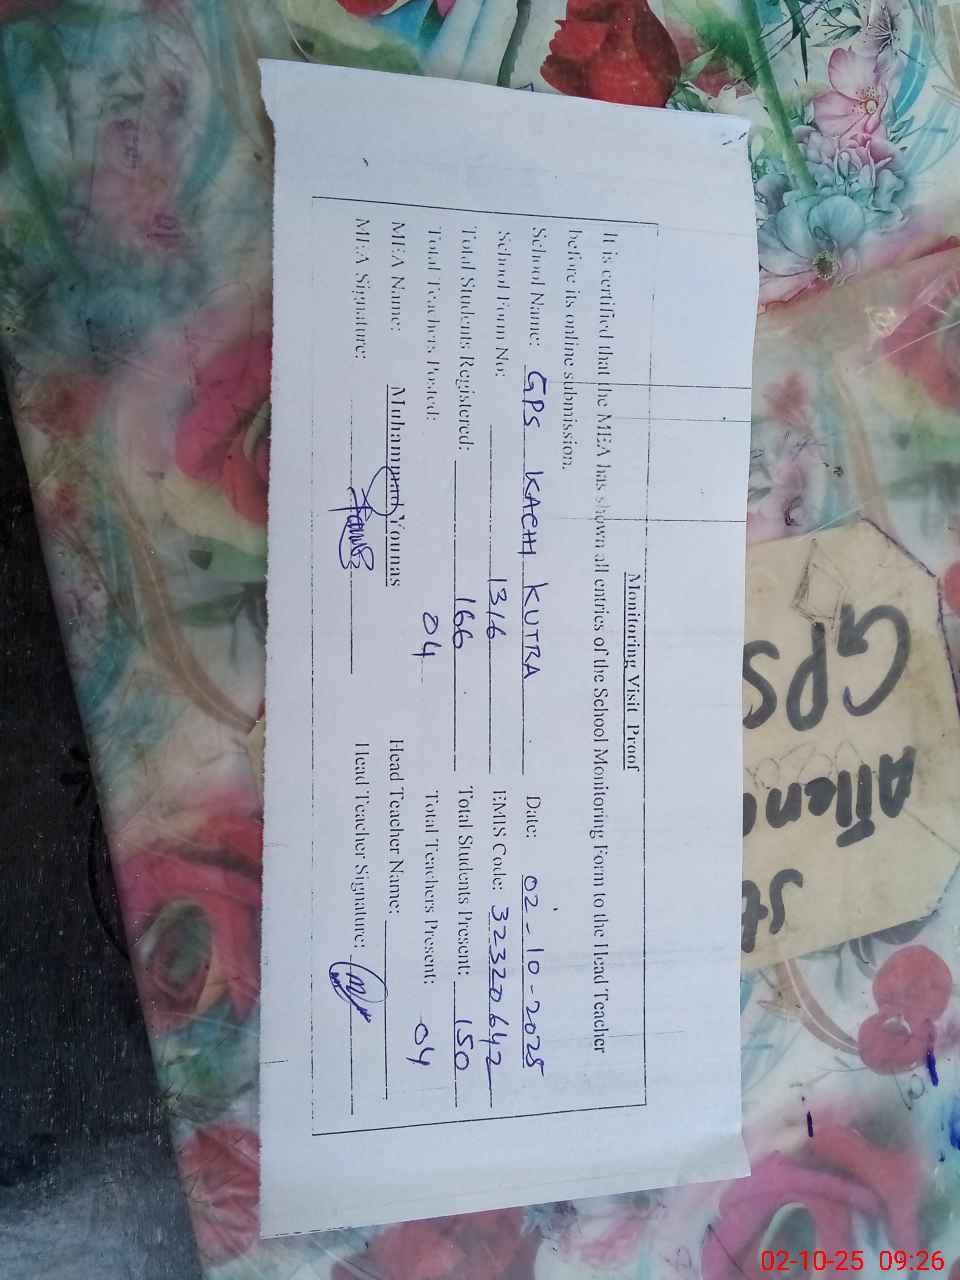 Monitoring Visit Proof
It is certified that the MEA has shown all entries of the School Monitoring Form to the Head Teacher
before its online submission.
School Name: GPS KACHI KUTRA Date: 02-10-2025
School Form No: 1316 EMIS Code: 32320642
Total Students Registered: 166 Total Students Present: 150
Total Teachers Posted: 04 Total Teachers Present: 04
MEA Name: Muhammad Younas Head Teacher Name:
MEA Signature: Head Teacher Signature:
GPS
St
02-10-25 09:26